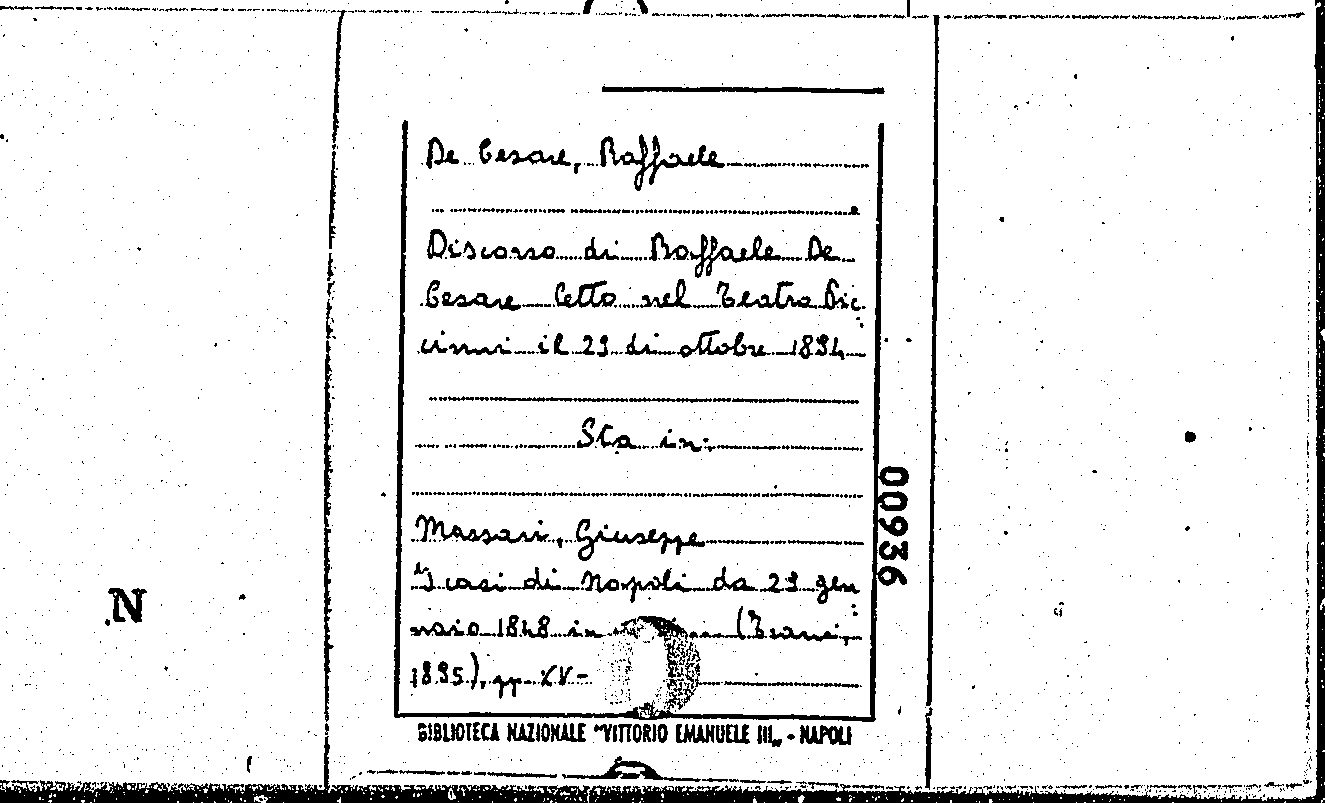 De Cesare, Raffaele
Discorso di Raffaele De
Cesare letto nel Teatro Pic
cinni il 29 di ottobre 1894
Sta in:
Massari, Giuseppe
I casi di Napoli da 29 gen
naio 1848 in (Trani,
1895), pp. XV-
BIBLIOTECA NAZIONALE "VITTORIO EMANUELE III„ - NAPOLI
00936
N